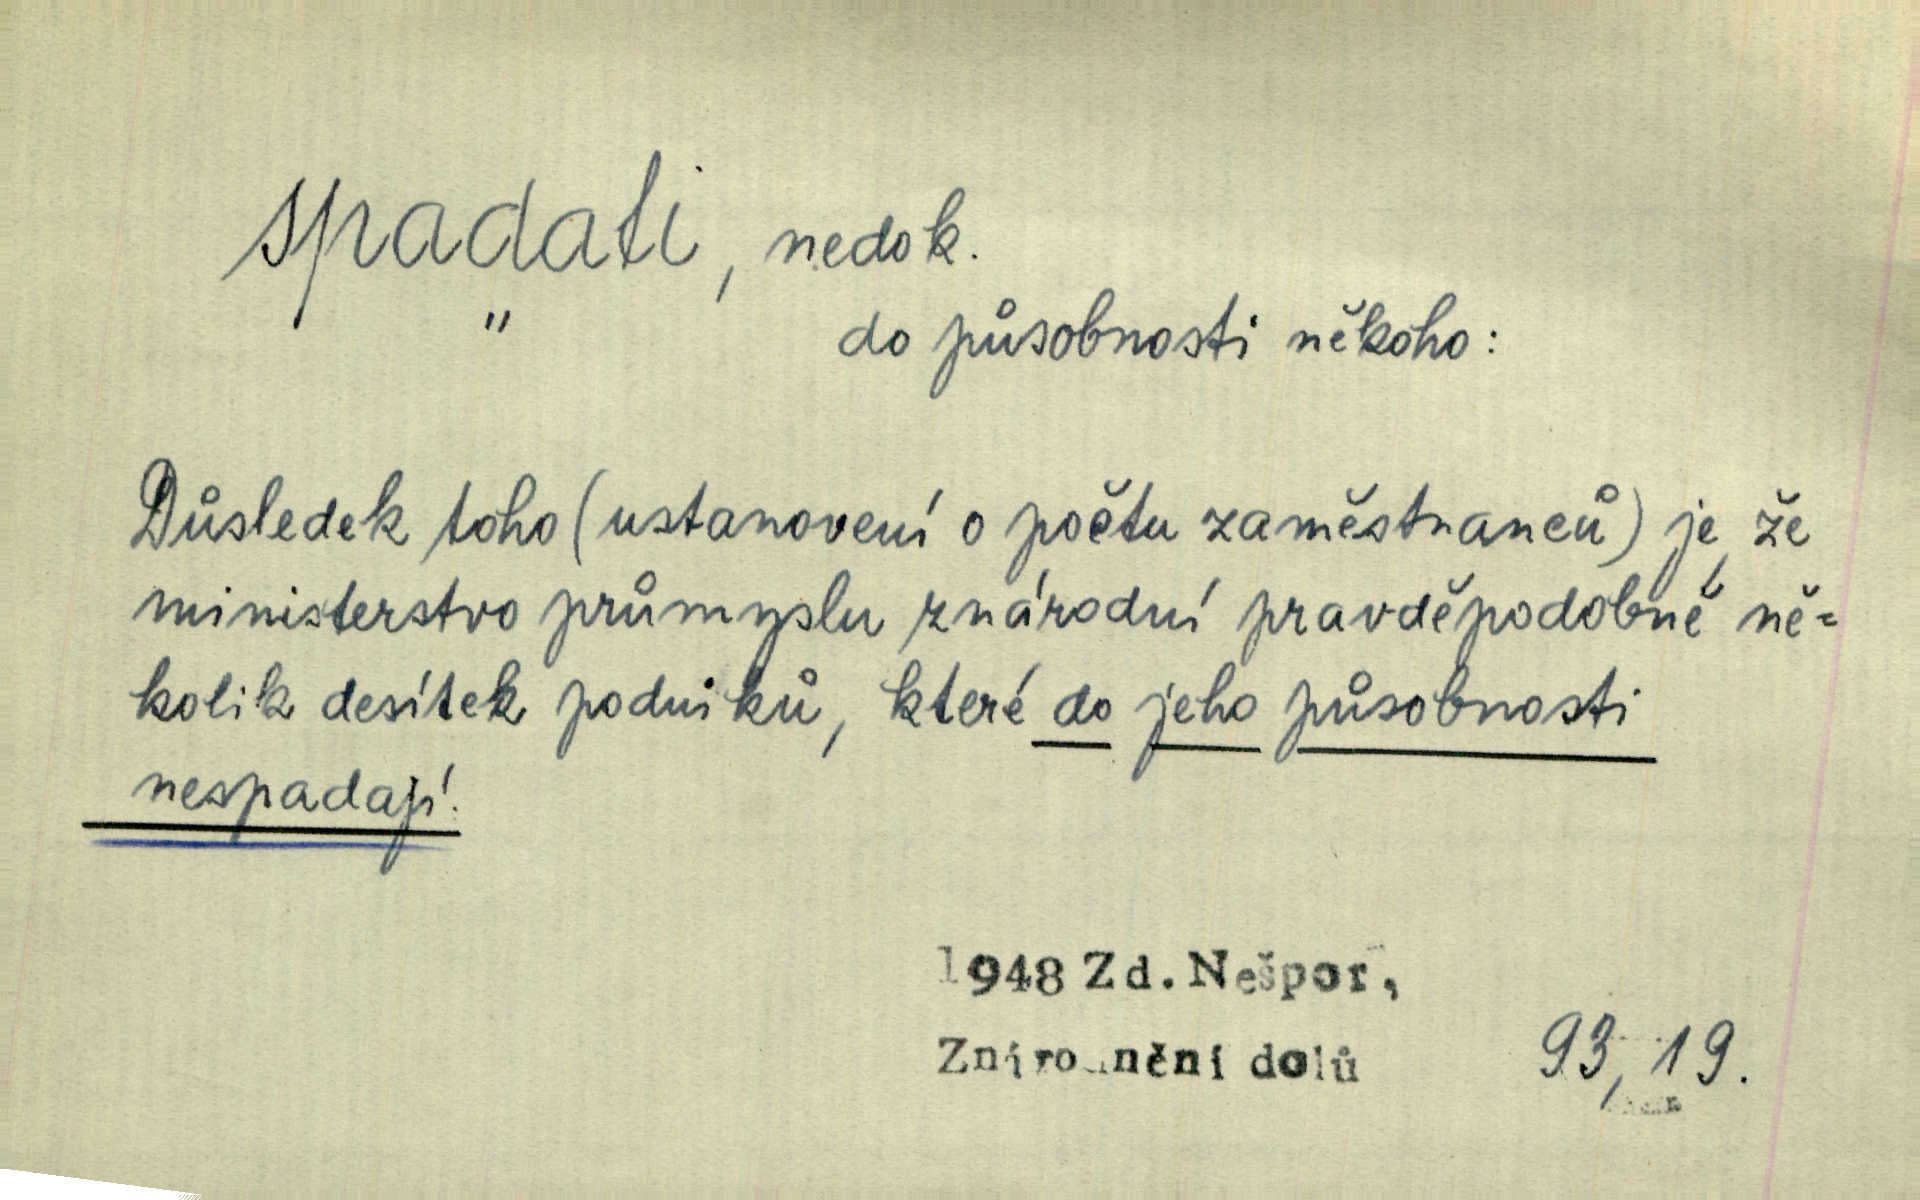 spadati, nedok.
" do působnosti někoho:
Důsledek toho (ustanovení o počtu zaměstnanců) je, že
ministerstvo průmyslu znárodní pravděpodobně ně=
kolik desítek podniků, které do jeho působnosti
nespadají.
1948 Zd. Nešpor,
dolů 93, 19.